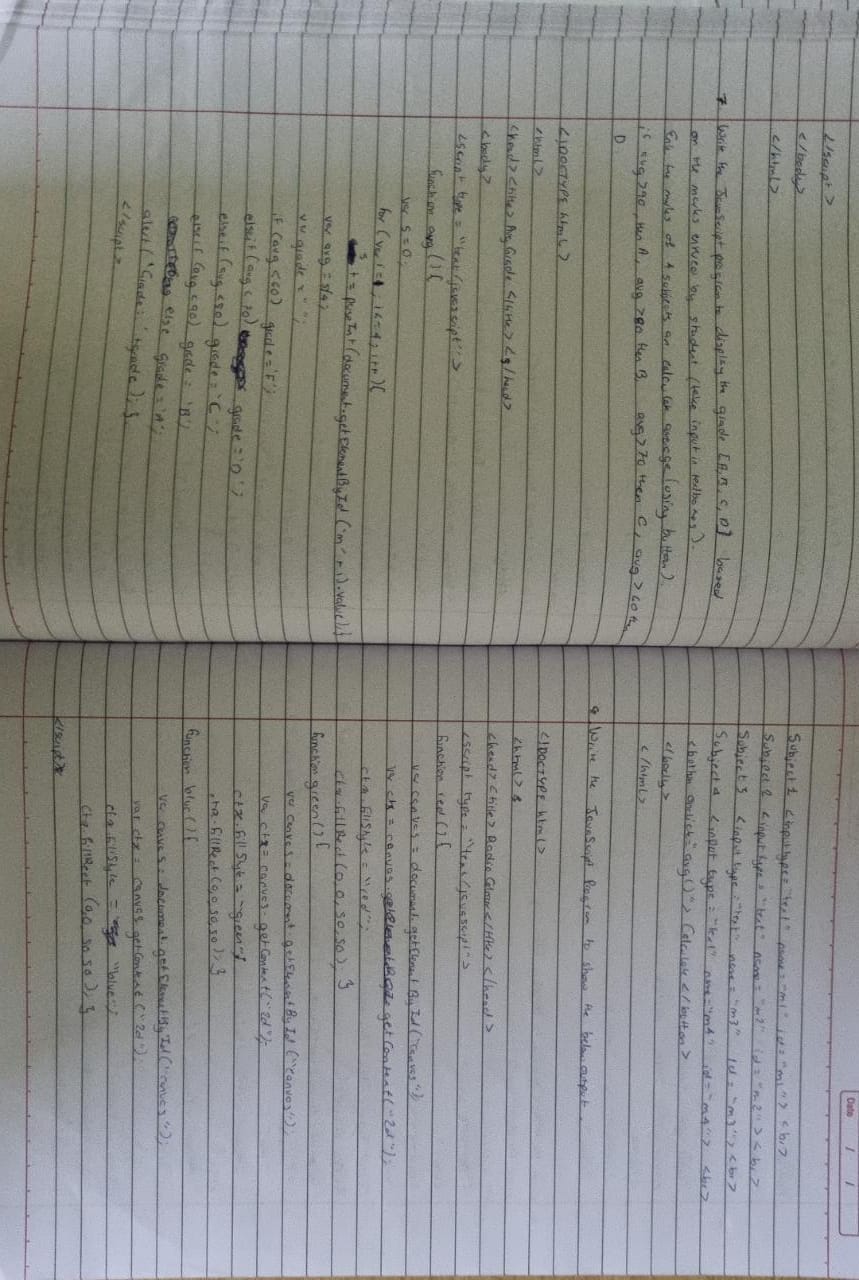 </script>
</body>
</html>
7 Write the JavaScript program to display the grade [A, B, C, D] based
on the marks entered by student (take input in textboxes).
Enter the marks of 4 subjects an calculate average (using button).
if avg >90, then A, avg >80 then B, avg >70 then C, avg >60 then
D
<!DOCTYPE html>
<html>
<head><title> Avg Grade </title></head>
<body>
<script type = "text/javascript">
function avg () {
var s = 0;
for (var i=1; i<=4; i++) {
s += parseInt (document.getElementById ('m' + i).value);}
var avg = s/4;
var grade = " ";
if (avg < 60) grade = 'F';
else if (avg < 70) grade = 'D';
else if (avg < 80) grade = 'C';
else if (avg < 90) grade = 'B';
else grade = 'A';
alert ('Grade: ' + grade); }
</script>
Date / /
Subject 1 <input type = "text" name = "m1" id = "m1"> <br>
Subject 2 <input type = "text" name = "m2" id = "m2"> <br>
Subject 3 <input type = "text" name = "m3" id = "m3"> <br>
Subject 4 <input type = "text" name = "m4" id = "m4"> <br>
<button onclick = "avg()"> Calculate </button>
</body>
</html>
Write the JavaScript Program to show the below output
<!DOCTYPE html>
<html>
<head><title> Radio Colour </title></head>
<script type = "text/javascript">
function red () {
var canvas = document.getElementById ("canvas");
var ctx = canvas.getContext ("2d");
ctx.fillStyle = "red";
ctx.fillRect (0, 0, 50, 50); }
function green () {
var canvas = document.getElementById ("canvas");
var ctx = canvas.getContext ("2d");
ctx.fillStyle = "green";
ctx.fillRect (0, 0, 50, 50); }
function blue () {
var canvas = document.getElementById ("canvas");
var ctx = canvas.getContext ("2d");
ctx.fillStyle = "blue";
ctx.fillRect (0, 0, 50, 50); }
</script>